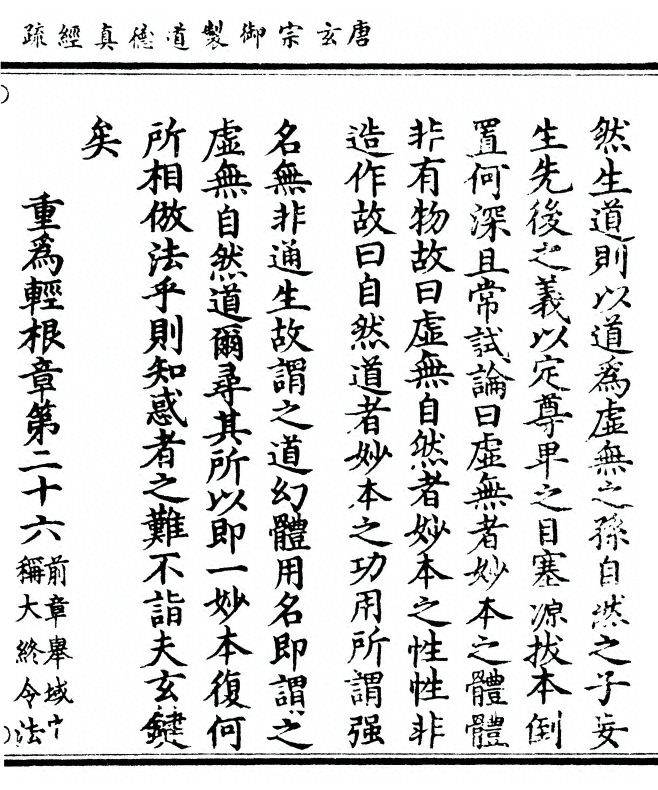 唐玄宗御製道德真經疏
然生道則以道為虛無之孫自然之子妄
生先後之義以定尊卑之目塞源拔本倒
置何深且常試論曰虛無者妙本之體體
非有物故曰虛無自然者妙本之性性非
造作故曰自然道者妙本之功用所謂强
名無非通生故謂之道幻體用名即謂之
虛無自然道爾尋其所以即一妙本復何
所相倣法乎則知惑者之難不詣夫玄鍵
矣
重為輕根章第二十六
前章舉域中
稱大終令法